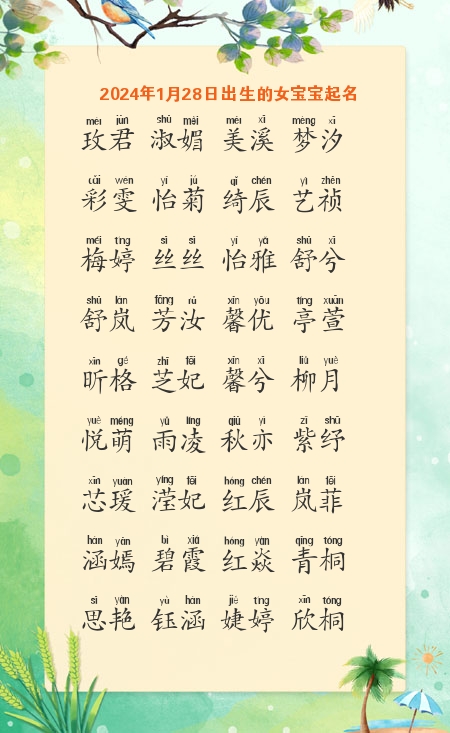 2024年1月28日出生的女宝宝起名
méi jūn shū mèi měi xī mèng xī
玫君 淑媚 美溪 梦汐
cǎi wén yí jú qǐ chén yì zhēn
彩雯 怡菊 绮辰 艺祯
méi tíng sī sī yí yǎ shū xī
梅婷 丝丝 怡雅 舒兮
shū lán fāng rǔ xīn yōu tíng xuān
舒岚 芳汝 馨优 亭萱
xīn gé zhī fēi xīn xī liǔ yuè
昕格 芝妃 馨兮 柳月
yuè méng yǔ líng qiū yì zǐ shū
悦萌 雨凌 秋亦 紫纾
xīn yuàn yíng fēi hóng chén lán fēi
芯瑗 滢妃 红辰 岚菲
hán yān bì xiá hóng yàn qīng tóng
涵嫣 碧霞 红焱 青桐
sī yàn yù hán jié tíng xīn tóng
思艳 钰涵 婕婷 欣桐